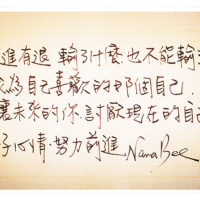 進有退 輸了什麼也不能輸
為自己喜歡的那個自己.
讓未來的你.討厭現在的自己
子心情.努力前進.NanaBee